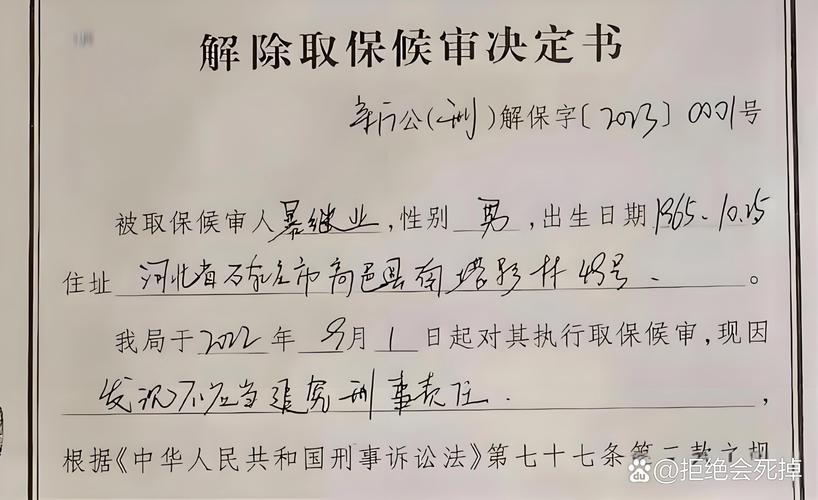 解除取保候审决定书
新公(刑)解保字〔2023〕0001号
被取保候审人暴继业,性别男,出生日期1965.10.25
住址河北省石家庄市高邑县南塔影村48号.。
我局于2022年9月1日起对其执行取保候审,现因
发现不应当追究刑事责任.,
根据《中华人民共和国刑事诉讼法》第七十七条第二款之规
百度@拒绝会死掉